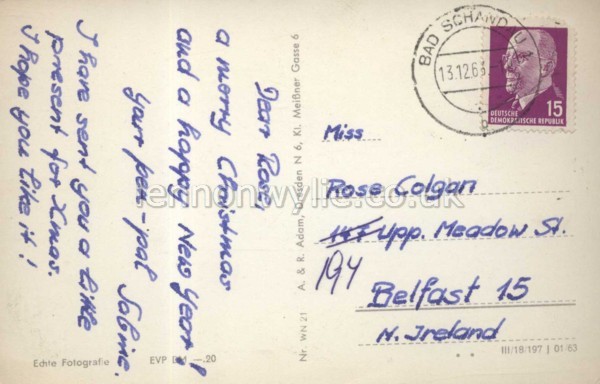 Dear Rose,
a merry Christmas
and a happy New Year!
your pen-pal Sabine.
I have sent you a little
present for Xmas.
I hope you like it!
Echte Fotografie
EVP DM —.20
Nr. WN 21 A. & R. Adam, Dresden N 6, Kl. Meißner Gasse 6
BAD SCHANDAU 1
13.12.63
15
DEUTSCHE
DEMOKRATISCHE REPUBLIK
Miss
Rose Colgan
Upp. Meadow St.
194
Belfast 15
N. Ireland
III/18/197 J 01/63
lennonwylie.co.uk